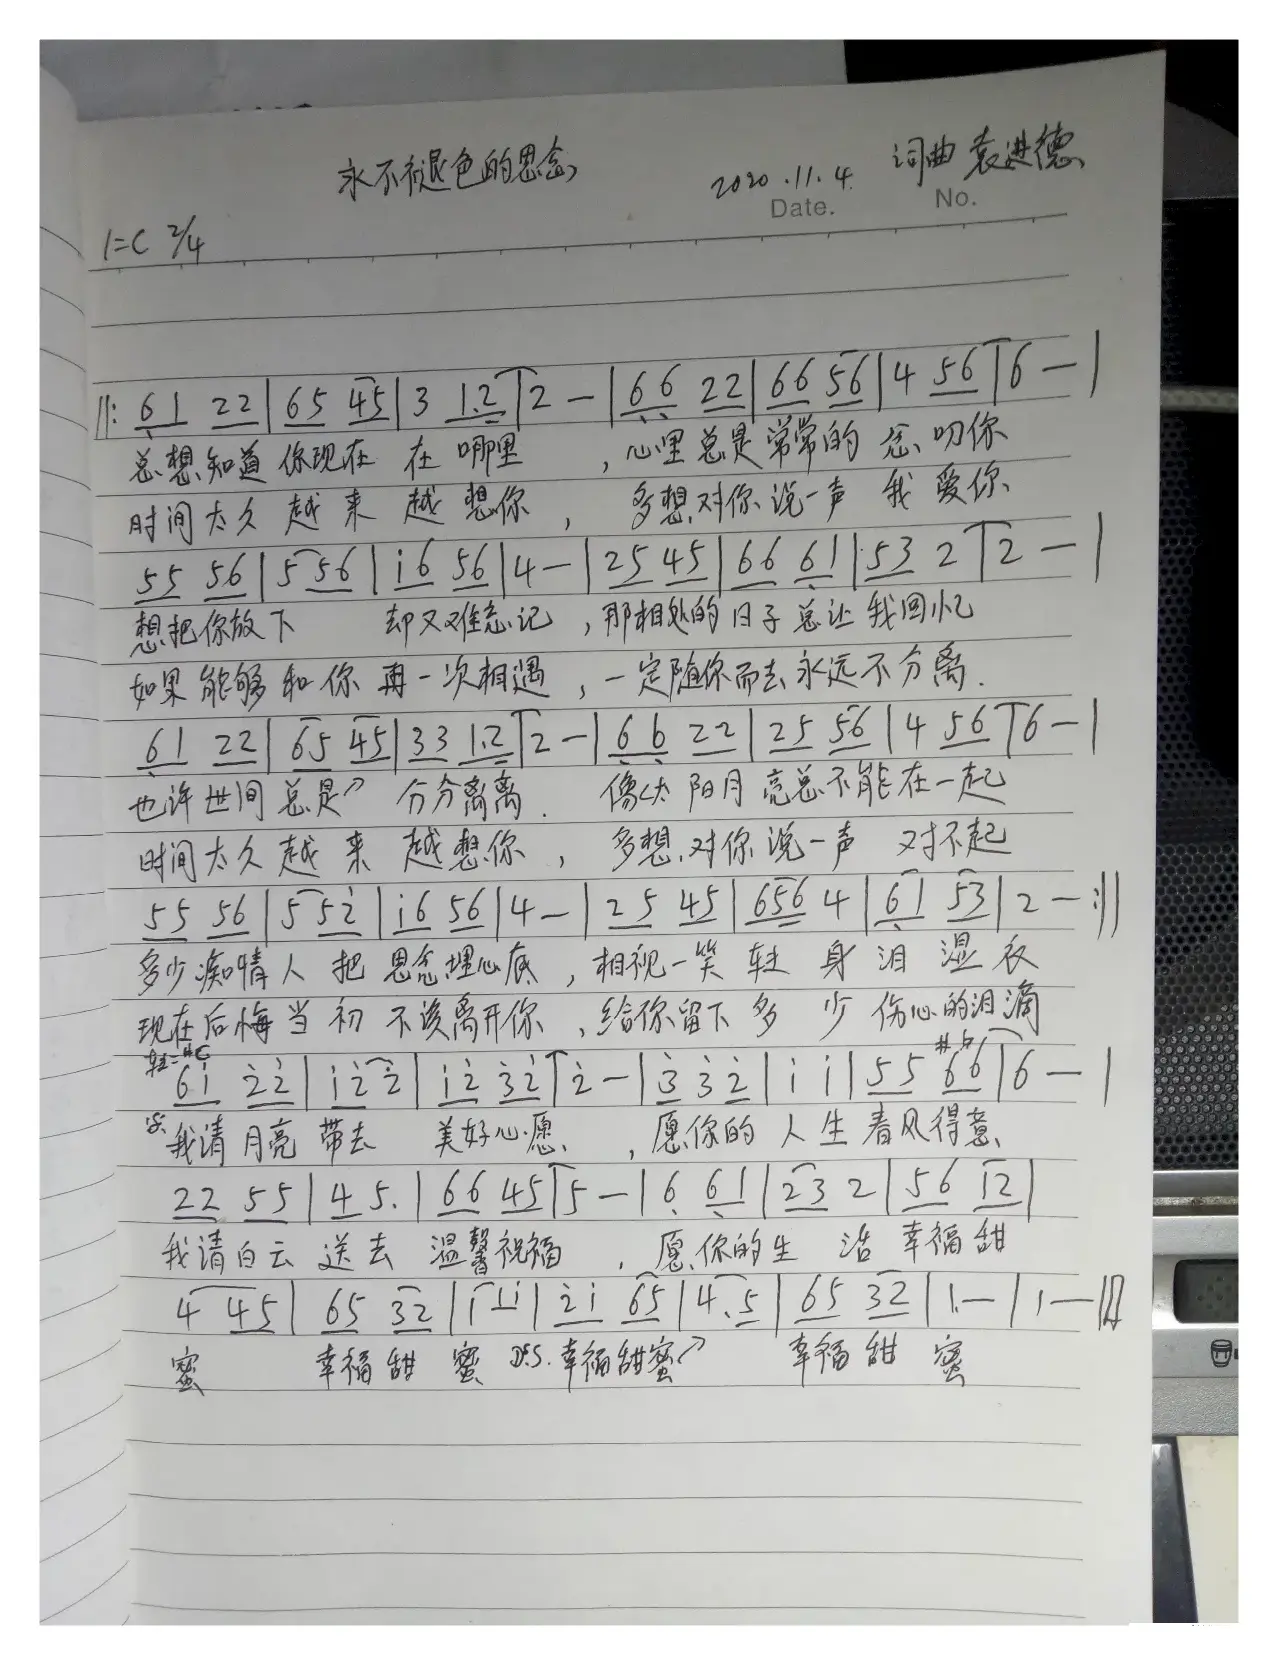 永不褪色的思念
2020.11.4. 词曲 袁进德
Date. No.
1=C 2/4
||: 61 22 | 65 45 | 3 1.2 | 2 — | 66 22 | 66 56 | 4 56 | 6 — |
总想知道 你现在 在哪里 , 心里总是常常的 念叨你
时间太久 越来 越想你 , 多想对你说一声 我爱你
55 56 | 5 56 | i6 56 | 4 — | 25 45 | 66 61 | 53 2 | 2 — |
想把你放下 却又难忘记 , 那相处的日子总让我回忆
如果能够和你再一次相遇 , 一定随你而去永远不分离.
61 22 | 65 45 | 33 1.2 | 2 — | 66 22 | 25 56 | 4 56 | 6 — |
也许世间总是 分分离离. 像 太阳月亮总不能在一起
时间太久越来 越想你 , 多想对你说一声 对不起
55 56 | 5 52 | i6 56 | 4 — | 25 45 | 656 4 | 61 53 | 2 — :||
多少痴情人把思念埋心底 , 相视一笑转身泪湿衣
现在后悔当初不该离开你 , 给你留下多少伤心的泪滴
转=#C
6i 22 | i2 2 | i2 32 | 2 — | 3 32 | i i | 55 66 | 6 — |
我请月亮带去 美好心愿 , 愿你的人生春风得意
22 55 | 4 5. | 66 45 | 5 — | 6 61 | 23 2 | 56 12 |
我请白云送去 温馨祝福 , 愿你的生活幸福甜
4 45 | 65 32 | i 1i | 2i 65 | 4. 5 | 65 32 | 1. — | 1 — ||
蜜 幸福甜蜜 D.S. 幸福甜蜜 幸福甜蜜